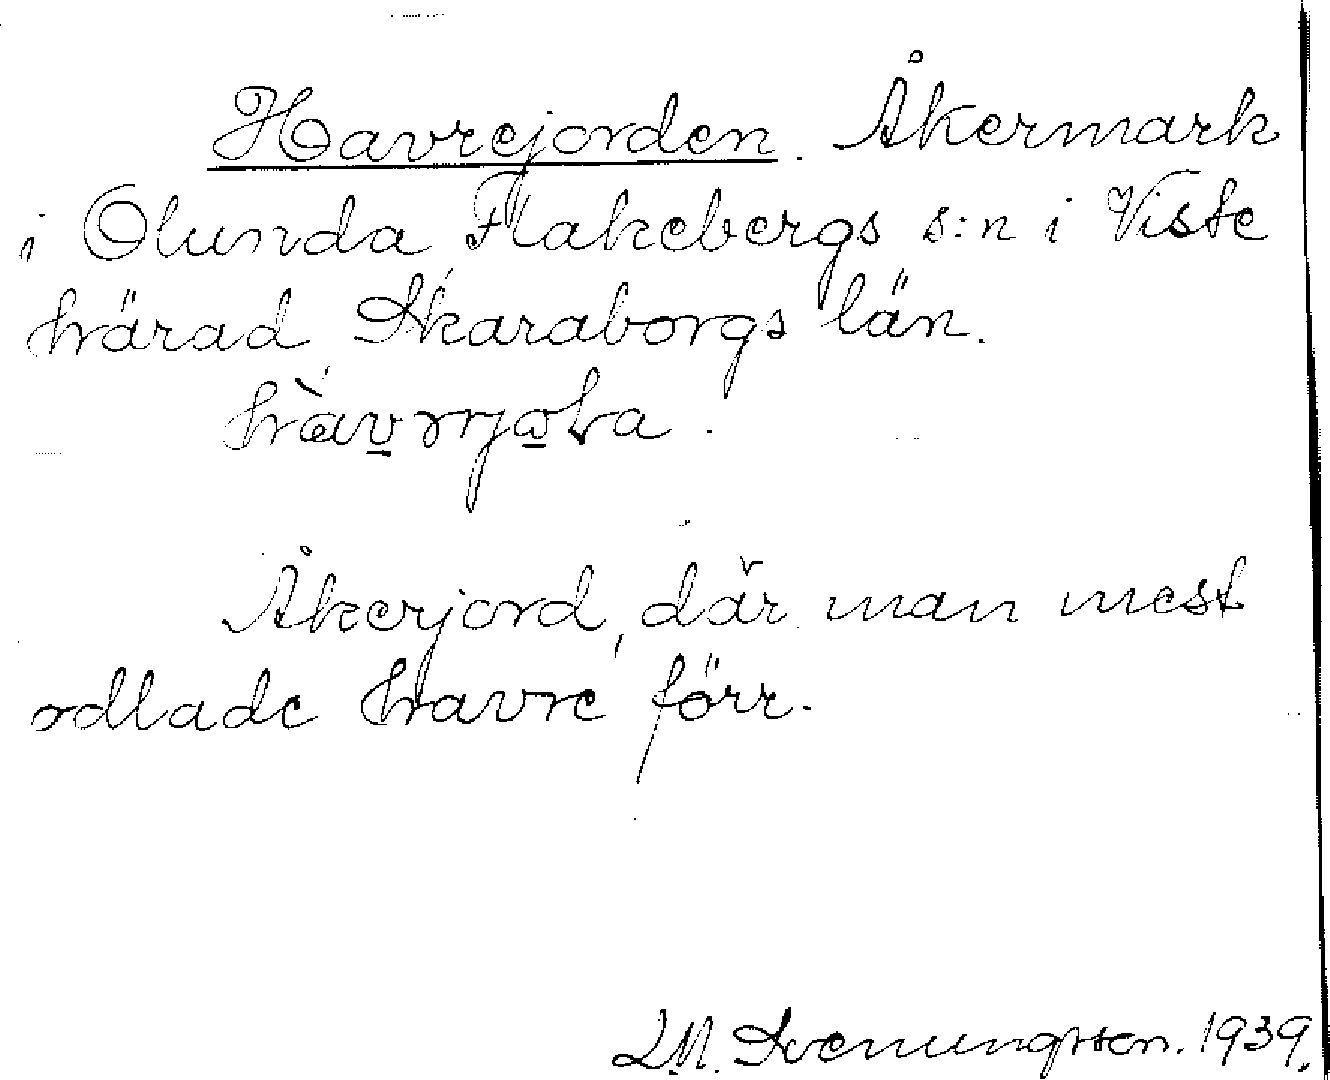 Havrejorden. Åkermark
i Olunda Flakebergs s:n i Viste
härad, Skaraborgs län.
Åkerjord, där man mest
odlade havre förr.
L.M. Svenungsson. 1939.